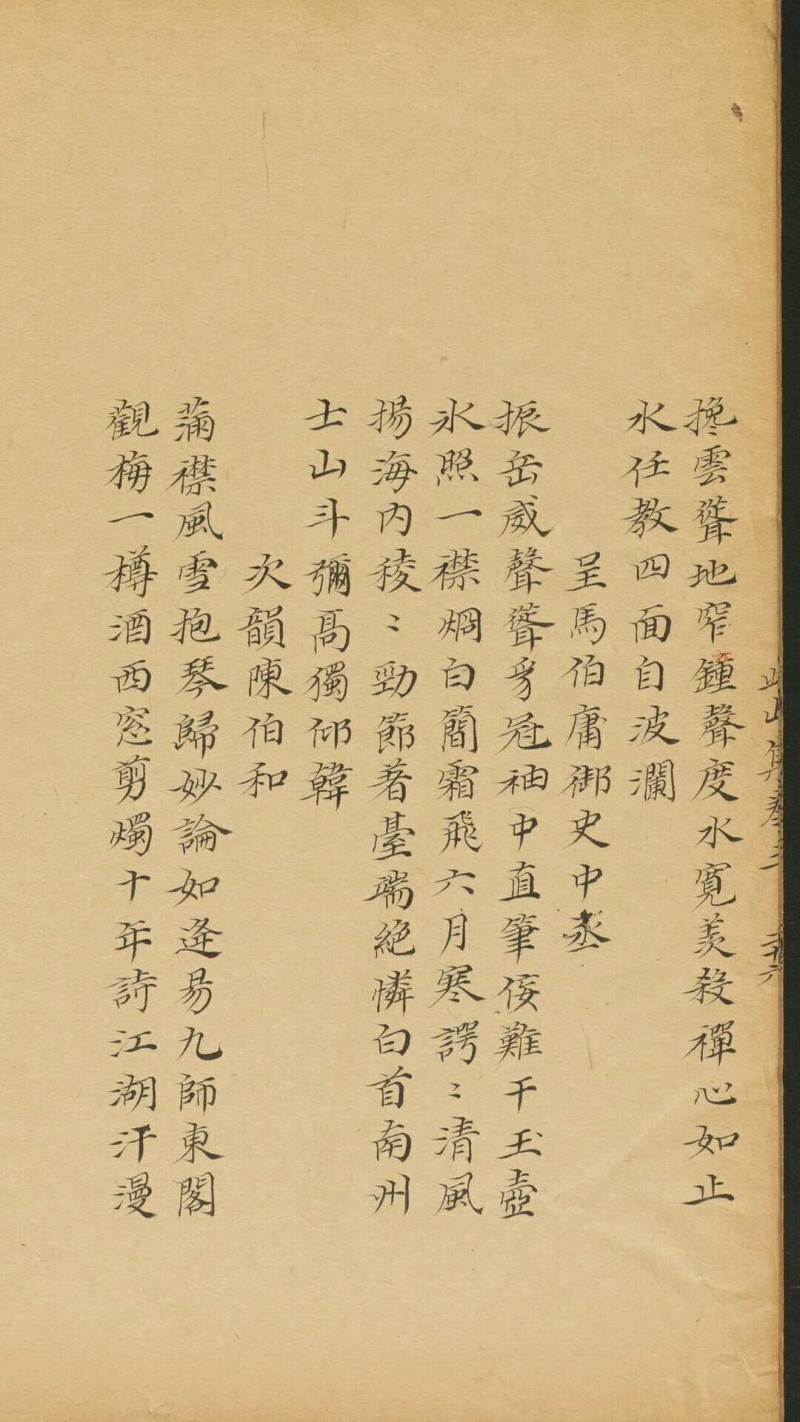 攙雲聳地窄鍾聲度水寛羨殺禪心如止
水任教四面自波瀾
呈馬伯庸御史中丞
振岳威聲聳豸冠袖中直筆佞難干玉壺
氷照一襟烱白簡霜飛六月寒諤〻清風
揚海内稜〻勁節著臺端絶憐白首南州
士山斗彌髙獨仰韓
次韻陳伯和
滿襟風雪抱琴歸妙論如逢易九師東閣
觀梅一樽酒西窓剪燭十年詩江湖汗漫